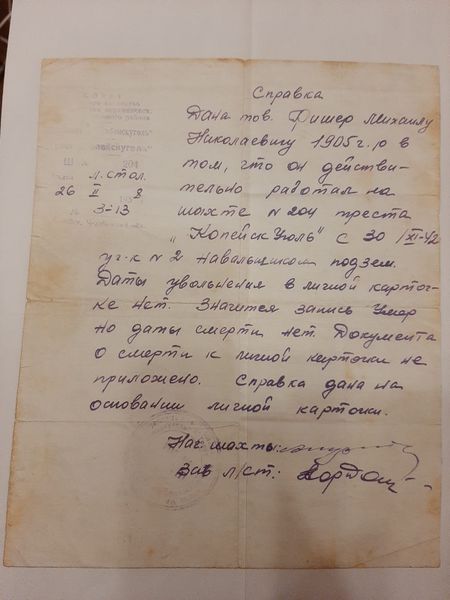 Справка
Дана тов. Фишер Михаилу
Николаевичу 1905 г. р в
том, что он действи-
тельно работал на
шахте № 204 треста
"Копейск Уголь" с 30/XI-42
уч-к № 2 навалыщиком подзем.
Даты увольнения в личной карточ-
ке нет. Значится запись Умер
но даты смерти нет. Документа
о смерти к личной карточки не
приложено. Справка дана на
основании личной карточки.
Нач. шахты:
Зав л/ст:
204
л. стол.
26 II 8
№ 3-13